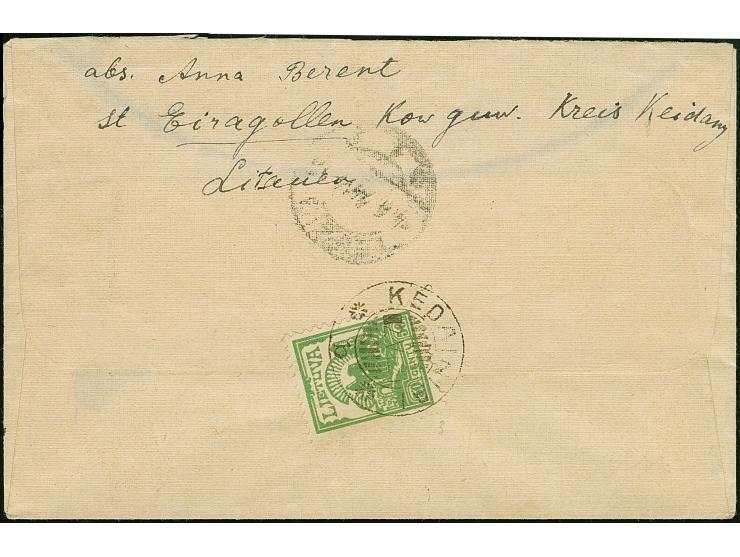 abs. Anna Berent
st Eiragollen Kow guw. Kreis Keidany
Litauen
KEDAINI
LIETUVA
3